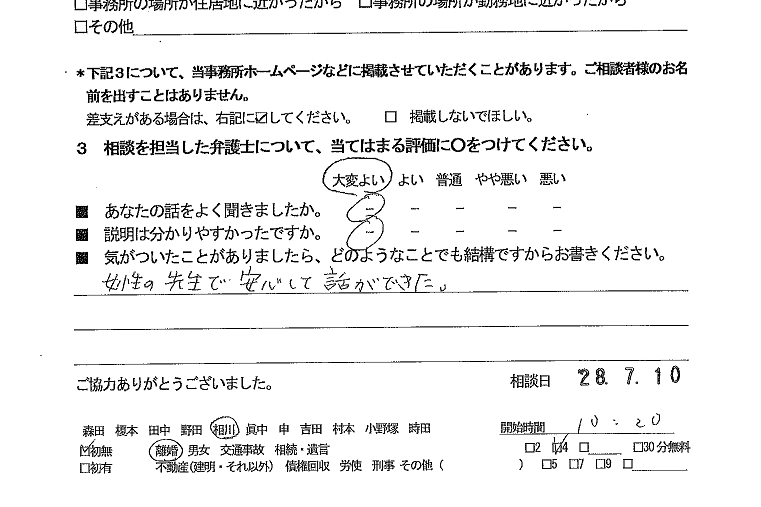 □事務所の場所が住居地に近かったから □事務所の場所が勤務地に近かったから
□その他
*下記3について、当事務所ホームページなどに掲載させていただくことがあります。ご相談者様のお名
前を出すことはありません。
差支えがある場合は、右記に☑してください。 □ 掲載しないでほしい。
3 相談を担当した弁護士について、当てはまる評価に〇をつけてください。
大変よい よい 普通 やや悪い 悪い
■ あなたの話をよく聞きましたか。 - - - - -
■ 説明は分かりやすかったですか。 - - - - -
■ 気がついたことがありましたら、どのようなことでも結構ですからお書きください。
女性の先生で安心して話ができた。
ご協力ありがとうございました。 相談日 28. 7. 10
森田 榎本 田中 野田 相川 眞中 申 吉田 村本 小野塚 時田 開始時間 10:20
☑初無 離婚 男女 交通事故 相続・遺言 □2 ☑4 □ □30分無料
□初有 不動産(建明・それ以外) 債権回収 労使 刑事 その他( ) □5 □7 □9 □